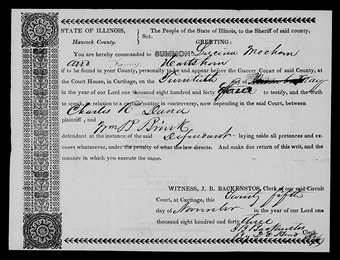 STATE OF ILLINOIS,
Hancock County.
Sct.
The People of the State of Illinois, to the Sheriff of said county,
GREETING:
You are hereby commanded to SUMMON Lucina Mecham
and Heartshorn
if to be found in your county, personally to be and appear before the CIRCUIT COURT of said County, at
the Court House, in Carthage, on the day of May
in the year of our Lord one thousand eight hundred and forty to testify, and the truth
to speak, in relation to a certain matter in controversy, now depending in the said Court, between
Charles R. Dana
plaintiff, and Wm B Brink
defendant at the instance of the said Defendant laying aside all pretences and ex-
cuses whatsoever, under the penalty of what the law directs. And make due return of this writ, and the
manner in which you execute the same.
WITNESS, J. B. BACKENSTOS, Clerk of our said Circuit
Court, at Carthage, this Twenty fifth
day of November in the year of our Lord one
thousand eight hundred and forty three
J B Backenstos Clerk